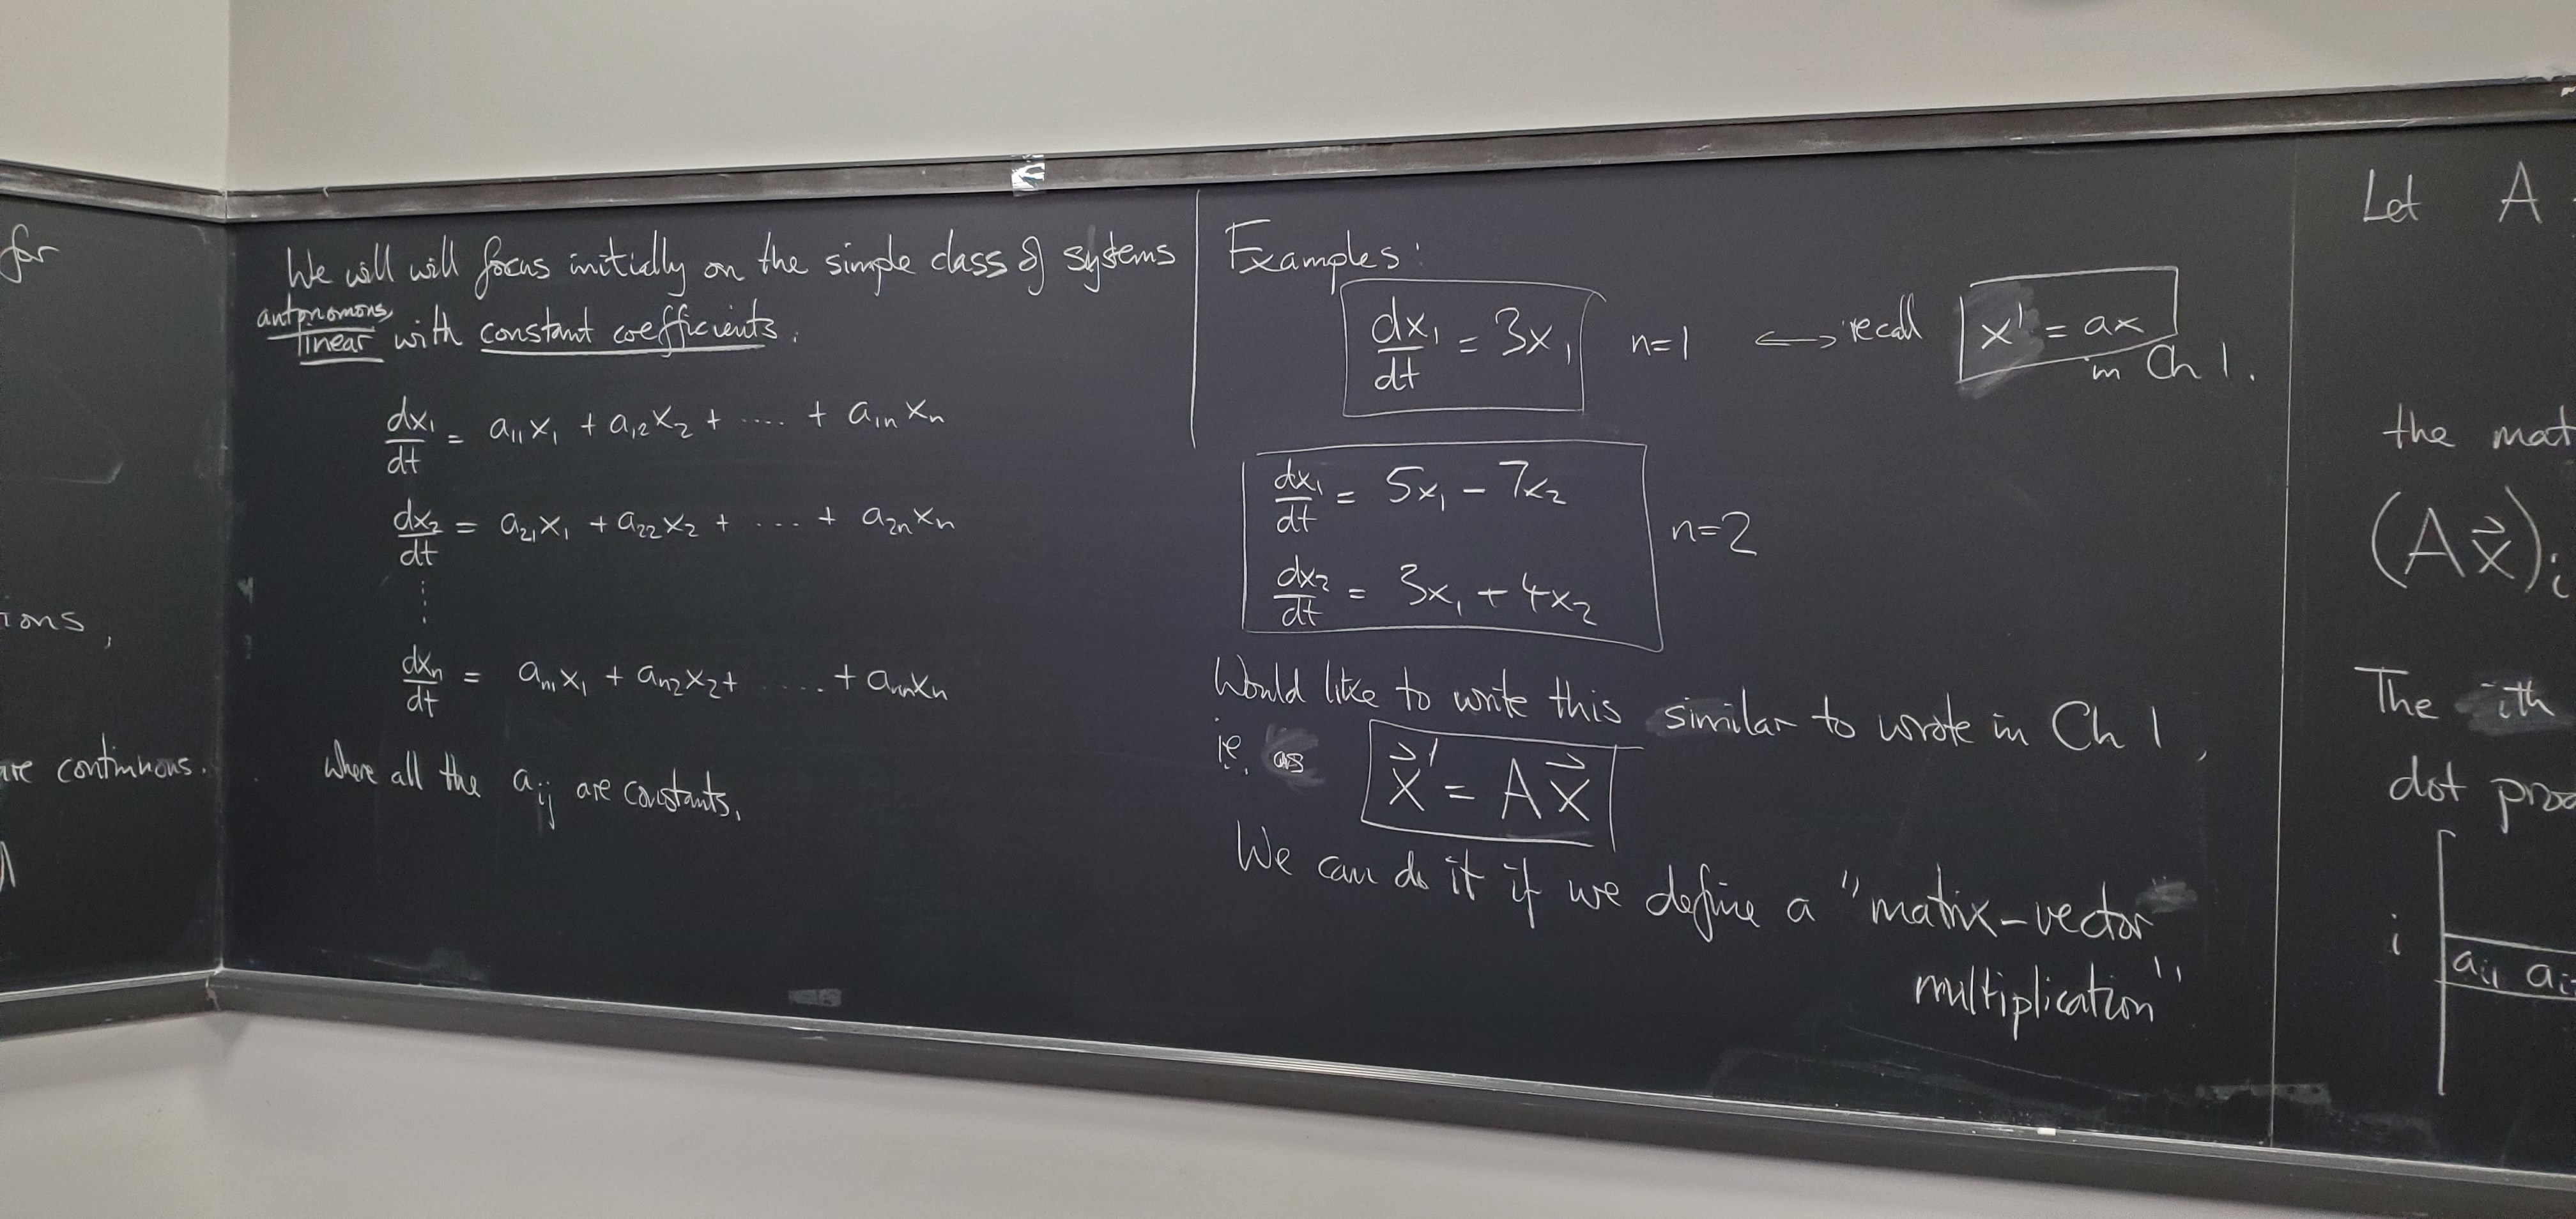 for
ions,
are continuous.
We will will focus initially on the simple class of systems
autonomous,
linear with constant coefficients.
dx₁/dt = a₁₁x₁ + a₁₂x₂ + .... + a₁ₙxₙ
dx₂/dt = a₂₁x₁ + a₂₂x₂ + .... + a₂ₙxₙ
⋮
dxₙ/dt = aₙ₁x₁ + aₙ₂x₂ + ..... + aₙₙxₙ
where all the aᵢⱼ are constants.
Examples:
dx₁/dt = 3x₁ n=1 ⟷ recall x' = ax
in Ch 1.
dx₁/dt = 5x₁ - 7x₂
n=2
dx₂/dt = 3x₁ + 4x₂
Would like to write this similar to wrote in Ch 1,
ie. as x⃗' = Ax⃗
We can do it if we define a "matix-vector
multiplication"
Let A
the mat
(Ax⃗)ᵢ
The ith
dot prod
i
aᵢ₁ aᵢ₂